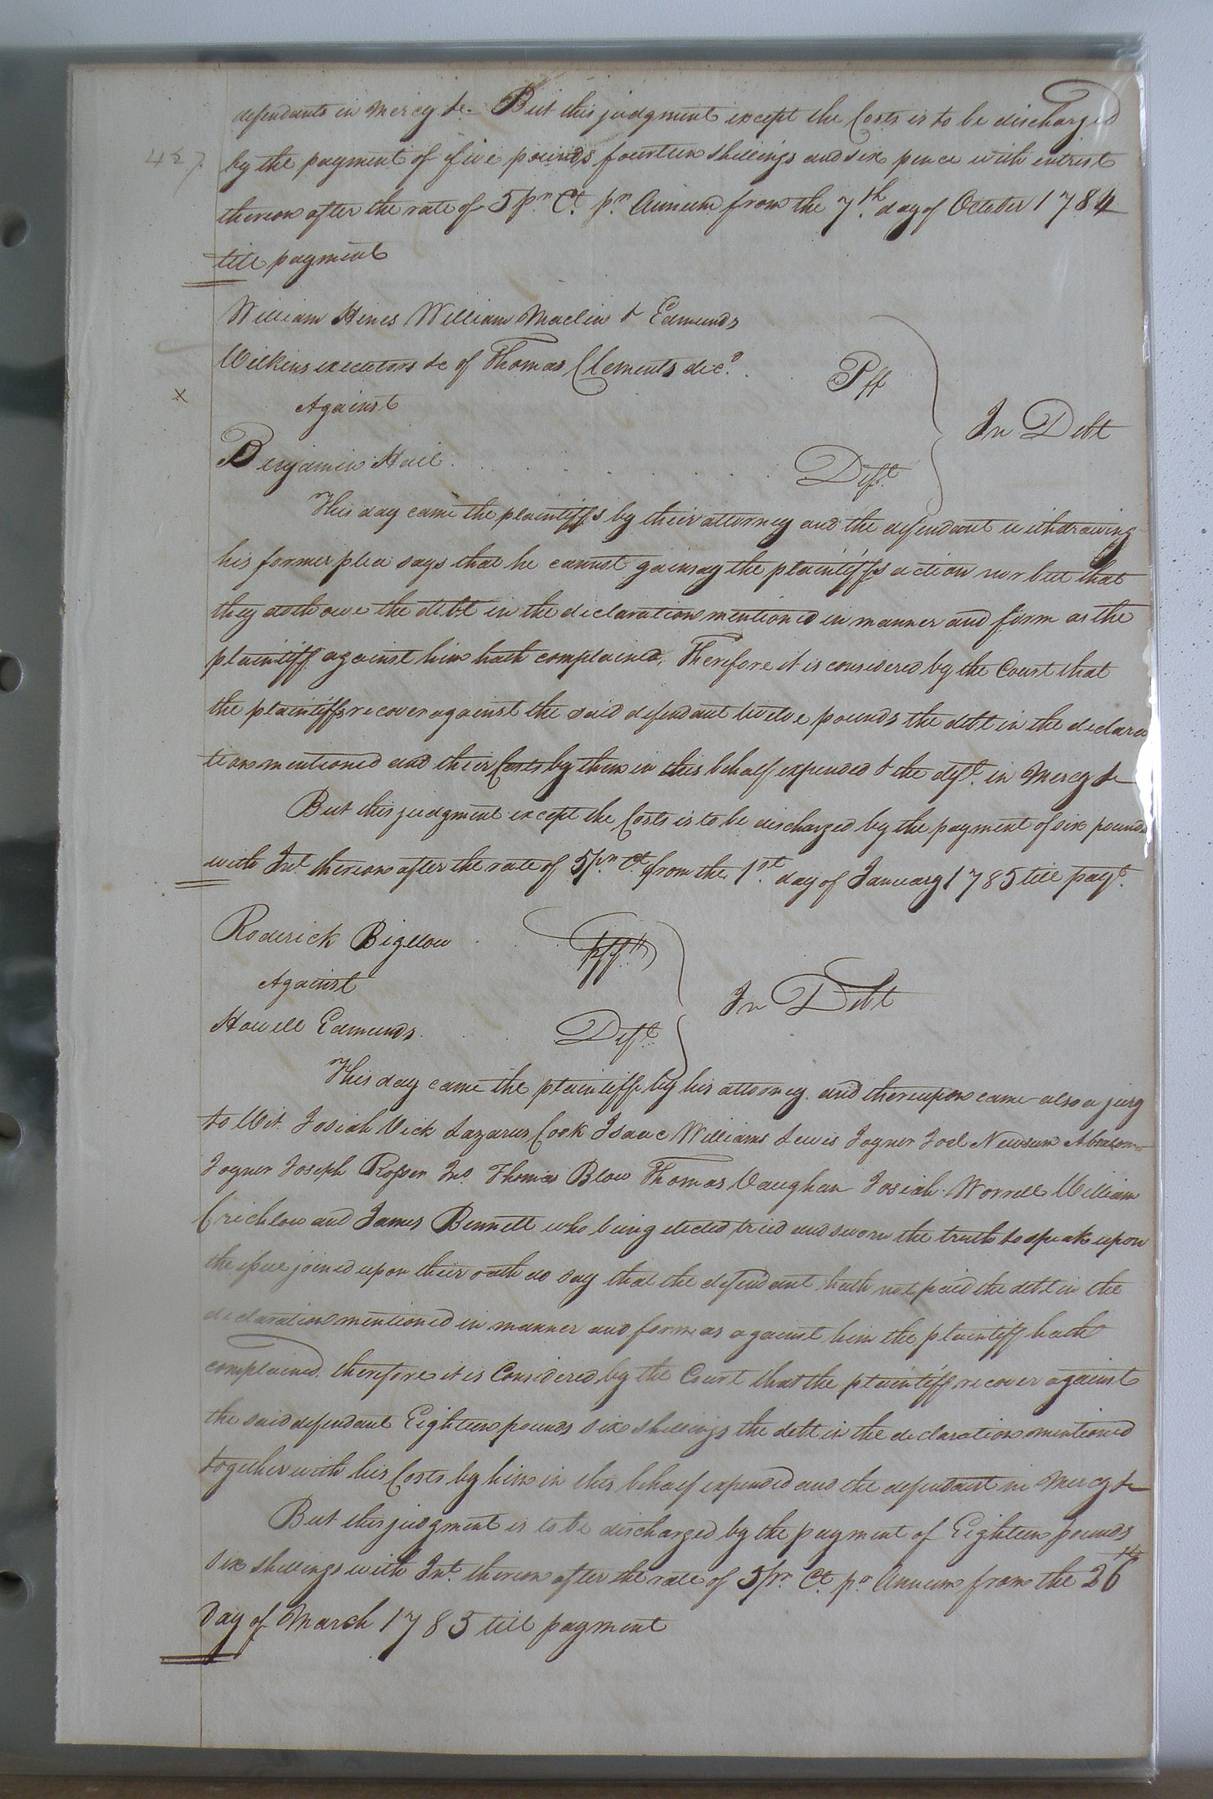 defendants in Mercy &c. But this judgment except the Costs is to be discharged
by the payment of five pounds fourteen shillings and six pence with intrest
thereon after the rate of 5 pr Ct. pr Annum from the 7th. day of October 1784
till payment
William Hines William Maclin & Edmunds
Wilkins executors &c of Thomas Clements decd. Pff
x
Against
In Debt
Benjamin Hail Deft.
This day came the plaintiffs by their attorney and the defendant withdrawing
his former plea says that he cannot gainsay the plaintiffs action nor but that
they doth owe the debt in the declaration mentioned in manner and form as the
plaintiff against him hath complained, Therefore it is considered by the Court that
the plaintiffs recover against the said defendant twelve pounds the debt in the declara
tion mentioned and their Costs by them in this behalf expended & the deft. in Mercy &c
But this judgment except the Costs is to be discharged by the payment of six pounds
with Int. thereon after the rate of 5 pr Ct. from the 1st. day of January 1785 till payt.
Roderick Bigelow Pff
Against
In Debt
Howell Edmunds Deft.
This day came the plaintiff by his attorney and thereupon came also a jury
to Wit Josiah Vick Lazarus Cook Isaac Williams Lewis Joyner Joel Newsum Abraham
Joyner Joseph Rosser Jno. Thomas Blow Thomas Vaughan Josiah Worrell William
Crichlow and James Bennett who being elected tried and sworn the truth to speak upon
the issue joined upon their oath do say that the defendant hath not paid the debt in the
declaration mentioned in manner and form as against him the plaintiff hath
complained. therefore it is Considered by the Court that the plaintiff recover against
the said defendant Eighteen pounds six shillings the debt in the declaration mentioned
together with his Costs by him in this behalf expended and the defendant in Mercy &c
But this judgment is to be discharged by the payment of Eighteen pounds
six shillings with Int. thereon after the rate of 5 pr Ct. pr Annum from the 26th
Day of March 1785 till payment